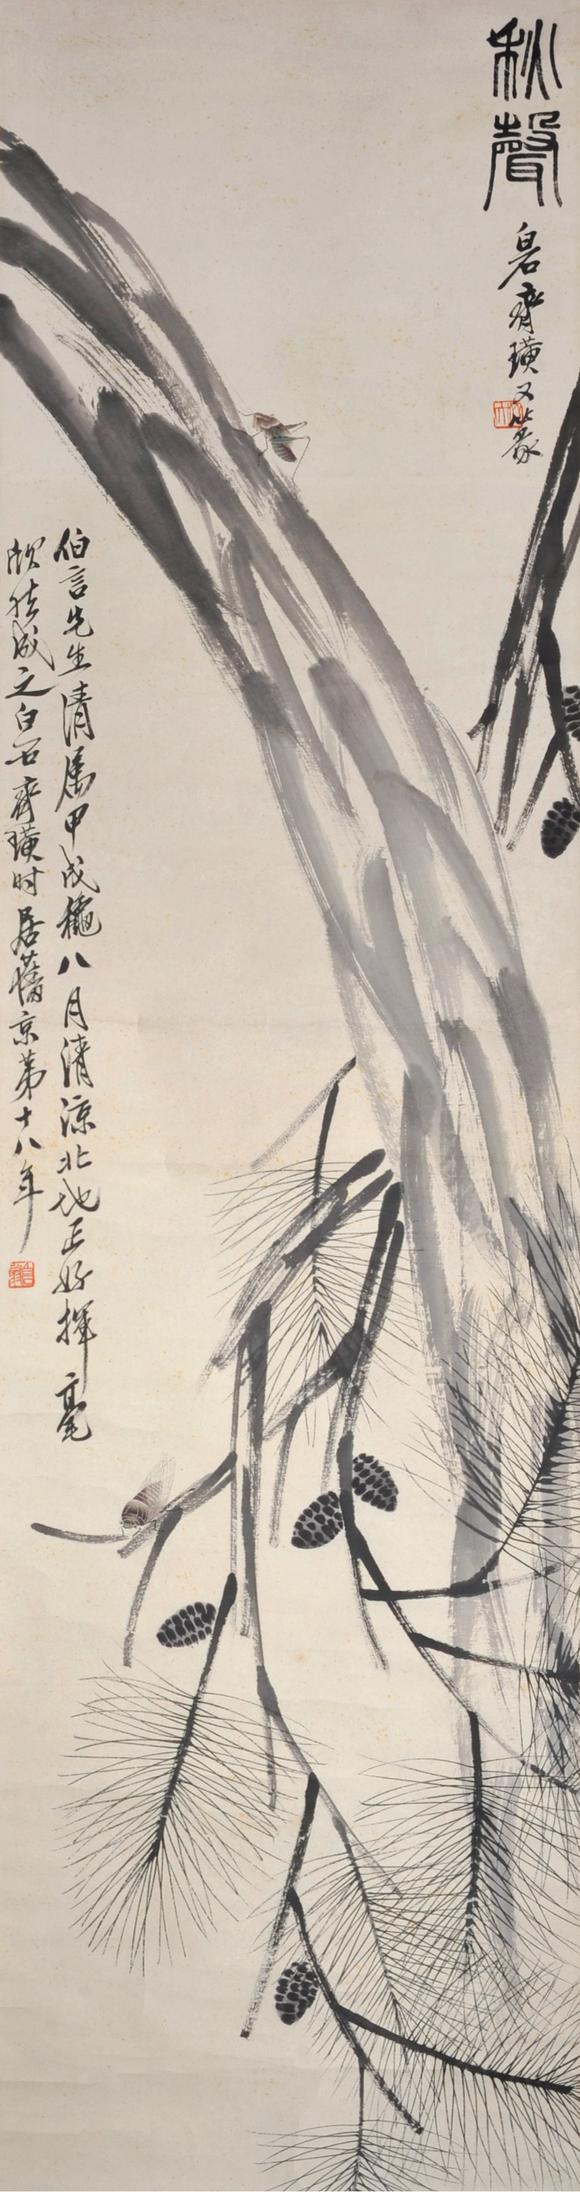 秋聲
白石齊璜又篆
伯言先生清屬甲戌秌八月清涼北地正好揮毫
白石齊璜時居舊京第十八年